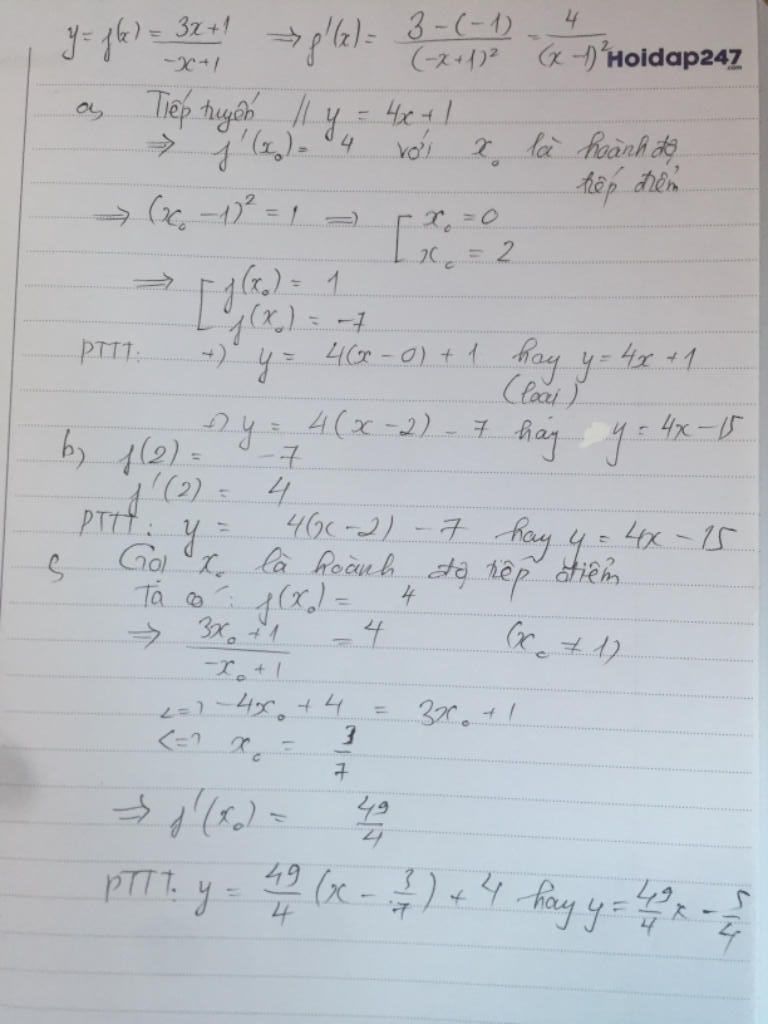 y = f(x) = \frac{3x+1}{-x+1} ⇒ f'(x) = \frac{3-(-1)}{(-x+1)^2} = \frac{4}{(x-1)^2}
Hoidap247.com
a, Tiếp tuyến // y = 4x+1
⇒ f'(x₀) = 4 với x₀ là hoành độ
tiếp điểm
⇒ (x₀ - 1)² = 1 ⇒ [ x₀ = 0
x₀ = 2
⇒ [ f(x₀) = 1
f(x₀) = -7
PTTT: +) y = 4(x-0) + 1 hay y = 4x + 1
(loại)
+) y = 4(x-2) - 7 hay y = 4x - 15
b) f(2) = -7
f'(2) = 4
PTTT: y = 4(x-2) - 7 hay y = 4x - 15
c, Gọi x₀ là hoành độ tiếp điểm
Ta có: f(x₀) = 4
⇒ \frac{3x₀+1}{-x₀+1} = 4 (x₀ ≠ 1)
<=> -4x₀ + 4 = 3x₀ + 1
<=> x₀ = \frac{3}{7}
⇒ f'(x₀) = \frac{49}{4}
PTTT: y = \frac{49}{4}(x - \frac{3}{7}) + 4 hay y = \frac{49}{4}x - \frac{5}{4}